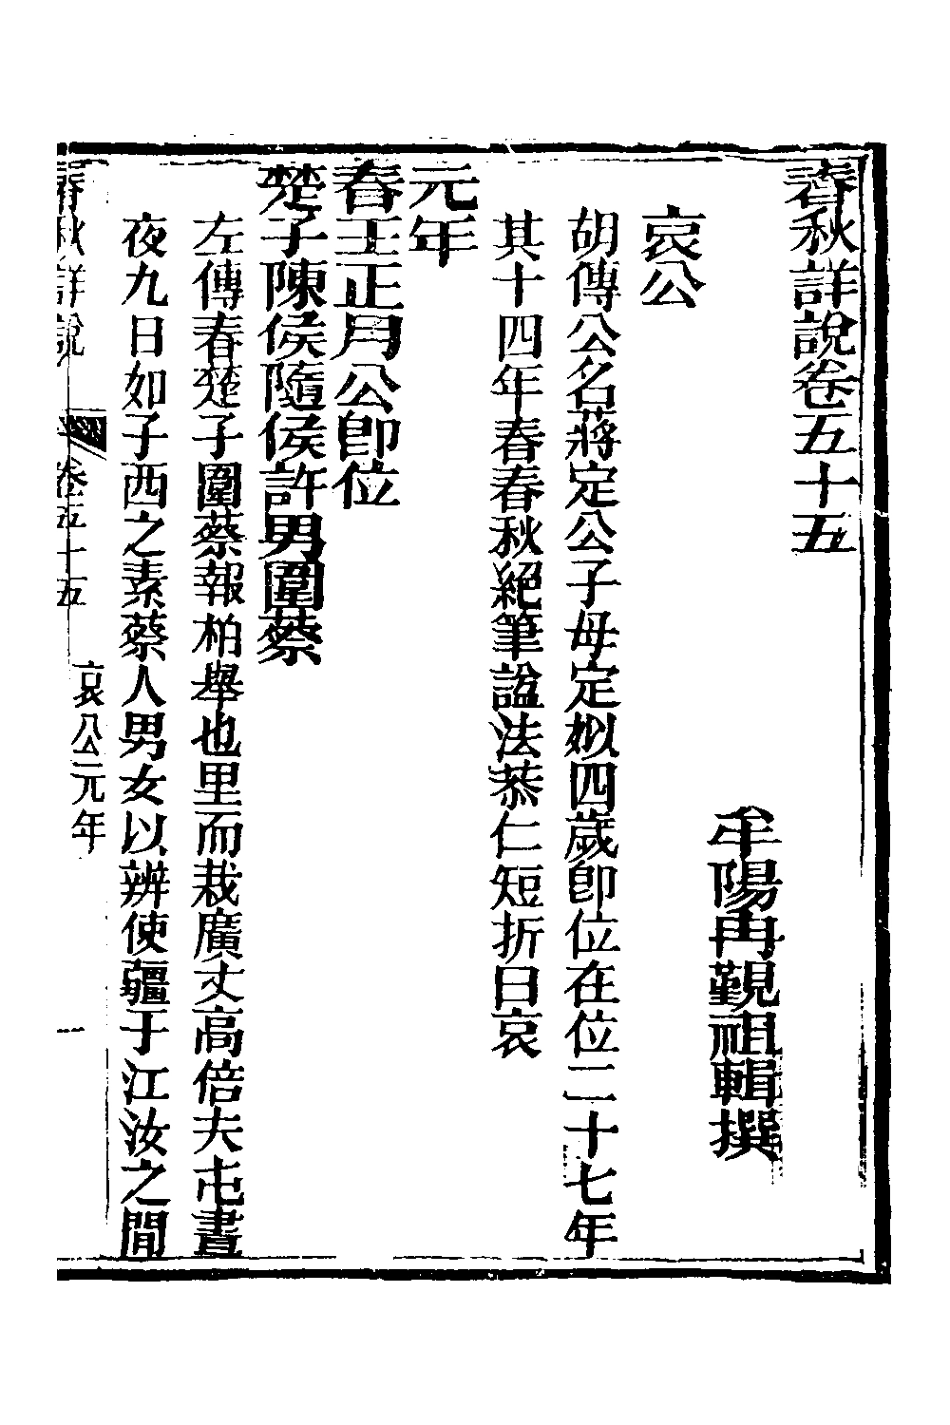 春秋詳說卷五十五
牟陽冉覲祖輯撰
哀公
胡傳公名蔣定公子母定姒四歲卽位在位二十七年
其十四年春春秋絕筆諡法恭仁短折曰哀
元年
春王正月公卽位
楚子陳侯隨侯許男圍蔡
左傳春楚子圍蔡報柏舉也里而栽廣丈高倍夫屯晝
夜九日如子西之素蔡人男女以辨使疆于江汝之間
春秋詳說 卷五十五 哀公元年 一